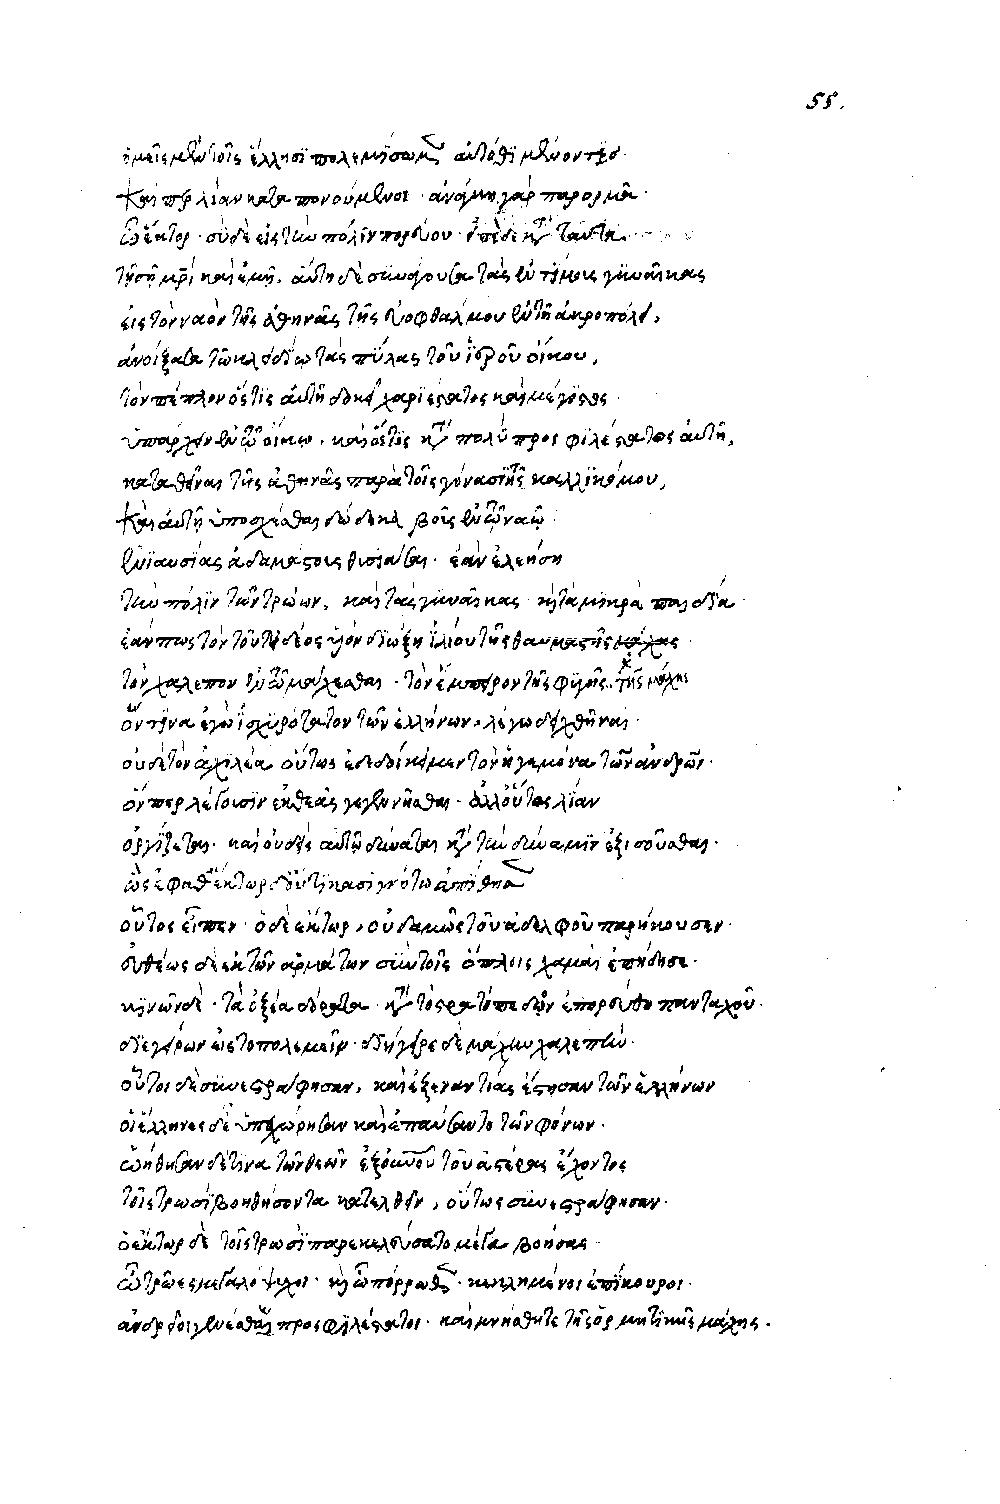 55.
ἡμεῖς μὲν τοῖς ἕλλησι πολεμήσωμεν αὐτόθι μένοντες·
καίπερ λίαν καταπονούμενοι · ἀνάγκη γὰρ παρορμᾶ·
ὦ ἕκτορ · σὺ δὲ εἰς τὴν πόλιν πορεύου · εἰπὲ δὲ μετὰ ταῦτα
τῇ σῇ μητρὶ καὶ ἐμῇ, αὕτη δὲ συνάγουσα τὰς ἐντίμους γυναῖκας
εἰς τὸν ναὸν τῆς ἀθηνᾶς τῆς εὐοφθάλμου ἐν τῇ ἀκροπόλει,
ἀνοίξασα τῷ κλειδίῳ τὰς πύλας τοῦ ἱεροῦ οἴκου,
τὸν πέπλον ὅστις αὐτῇ δοκεῖ χαριέστατος καὶ μέγιστος
ὑπάρχειν ἐν τῷ οἴκῳ, καὶ ὅστις πολὺ προσφιλέστατος αὐτῇ,
καταθεῖναι τῆς ἀθηνᾶς παρὰ τοῖς γόνασι τῆς καλλικόμου,
καὶ αὐτῇ ὑποσχέσθαι δώδεκα βοῦς ἐν τῷ ναῷ
ἐνιαυσίας ἀδαμάστους θυσιάσαι · ἐὰν ἐλεήσῃ
τὴν πόλιν τῶν τρώων, καὶ τὰς γυναῖκας καὶ τὰ μικρὰ παιδία ·
ἐάν πως τὸν τοῦ τυδέος υἱὸν διώξῃ ἰλίου τῆς θαυμαστῆς μάχης·
τὸν χαλεπὸν ἐν τῷ μάχεσθαι · τὸν ἔμπειρον τῆς φυγῆς. τῆς μάχης
ὅντινα ἐγὼ ἰσχυρότατον τῶν ἑλλήνων λέγω δειχθῆναι·
οὐδὲ τὸν ἀχιλέα οὕτως ἐδεδίκειμεν τὸν ἡγεμόνα τῶν ἀνδρῶν·
ὅνπερ λέγουσιν ἐκ θεᾶς γεγενῆσθαι · ἀλλ' οὗτος λίαν
ὀργίζεται · καὶ οὐδεὶς αὐτῷ δύναται κατὰ τὴν δύναμιν ἐξισοῦσθαι·
ὣς ἔφαθ' ἕκτωρ δ' οὔτι κασιγνήτῳ ἀπίθησεν
οὗτος εἶπεν · ὁ δὲ ἕκτωρ, οὐδαμῶς τοῦ ἀδελφοῦ παρήκουσεν·
εὐθέως δὲ ἐκ τῶν ἁρμάτων σὺν τοῖς ὅπλοις χαμαὶ ἐπήδησε·
κινῶν δὲ · τὰ ὀξέα δόρατα · κατὰ τὸ στρατόπεδον ἐπορεύθη πανταχοῦ·
διεγείρων εἰς τὸ πολεμεῖν · διήγειρε δὲ μάχην χαλεπήν·
οὗτοι δὲ συνεστράφησαν, καὶ ἐξεναντίας ἔστησαν τῶν ἑλλήνων
οἱ ἕλληνες δὲ ὑπεχώρησαν καὶ ἐπαύσαντο τῶν φόνων·
ᾠήθησαν δέ τινα τῶν θεῶν ἐξ οὐρανοῦ τοῦ ἀστέρας ἔχοντος
τοῖς τρωσὶ βοηθήσοντα κατελθεῖν, οὕτως συνεστράφησαν·
ὁ ἕκτωρ δὲ τοῖς τρωσὶ παρεκελεύσατο μέγα βοήσας·
ὦ τρῶες μεγαλόψυχοι · καὶ ὦ πόρρωθεν κεκλημένοι ἐπίκουροι·
ἀνδρεῖοι γενέσθαι προσφιλέστατοι · καὶ μνήσθητε τῆς ὁρμητικῆς μάχης.